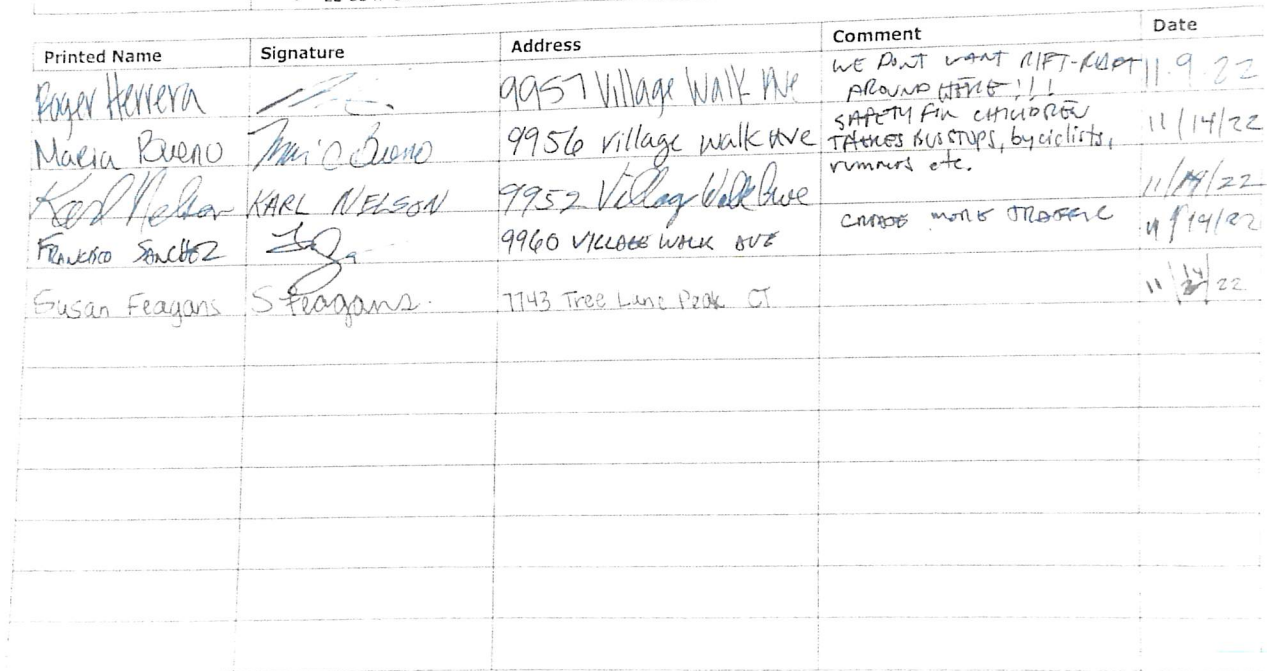 Printed Name Signature Address Comment Date
Roger Herrera 9957 Village Walk Ave WE DON'T WANT RIFT-RAFT AROUND HERE!!! 11.9.22
Maria Bueno Maria Bueno 9956 village walk Ave SAFETY FOR CHILDREN 11/14/22
BUSSTOPS, byciclists,
runners etc.
Karl Nelson KARL NELSON 9952 Village Walk Ave 11/14/22
FRANCISCO SANCHEZ 9960 VILLAGE WALK AVE MORE TRAFFIC 11/14/22
Susan Feagans S Feagans 7743 Tree Lane Peak CT 11/14/22